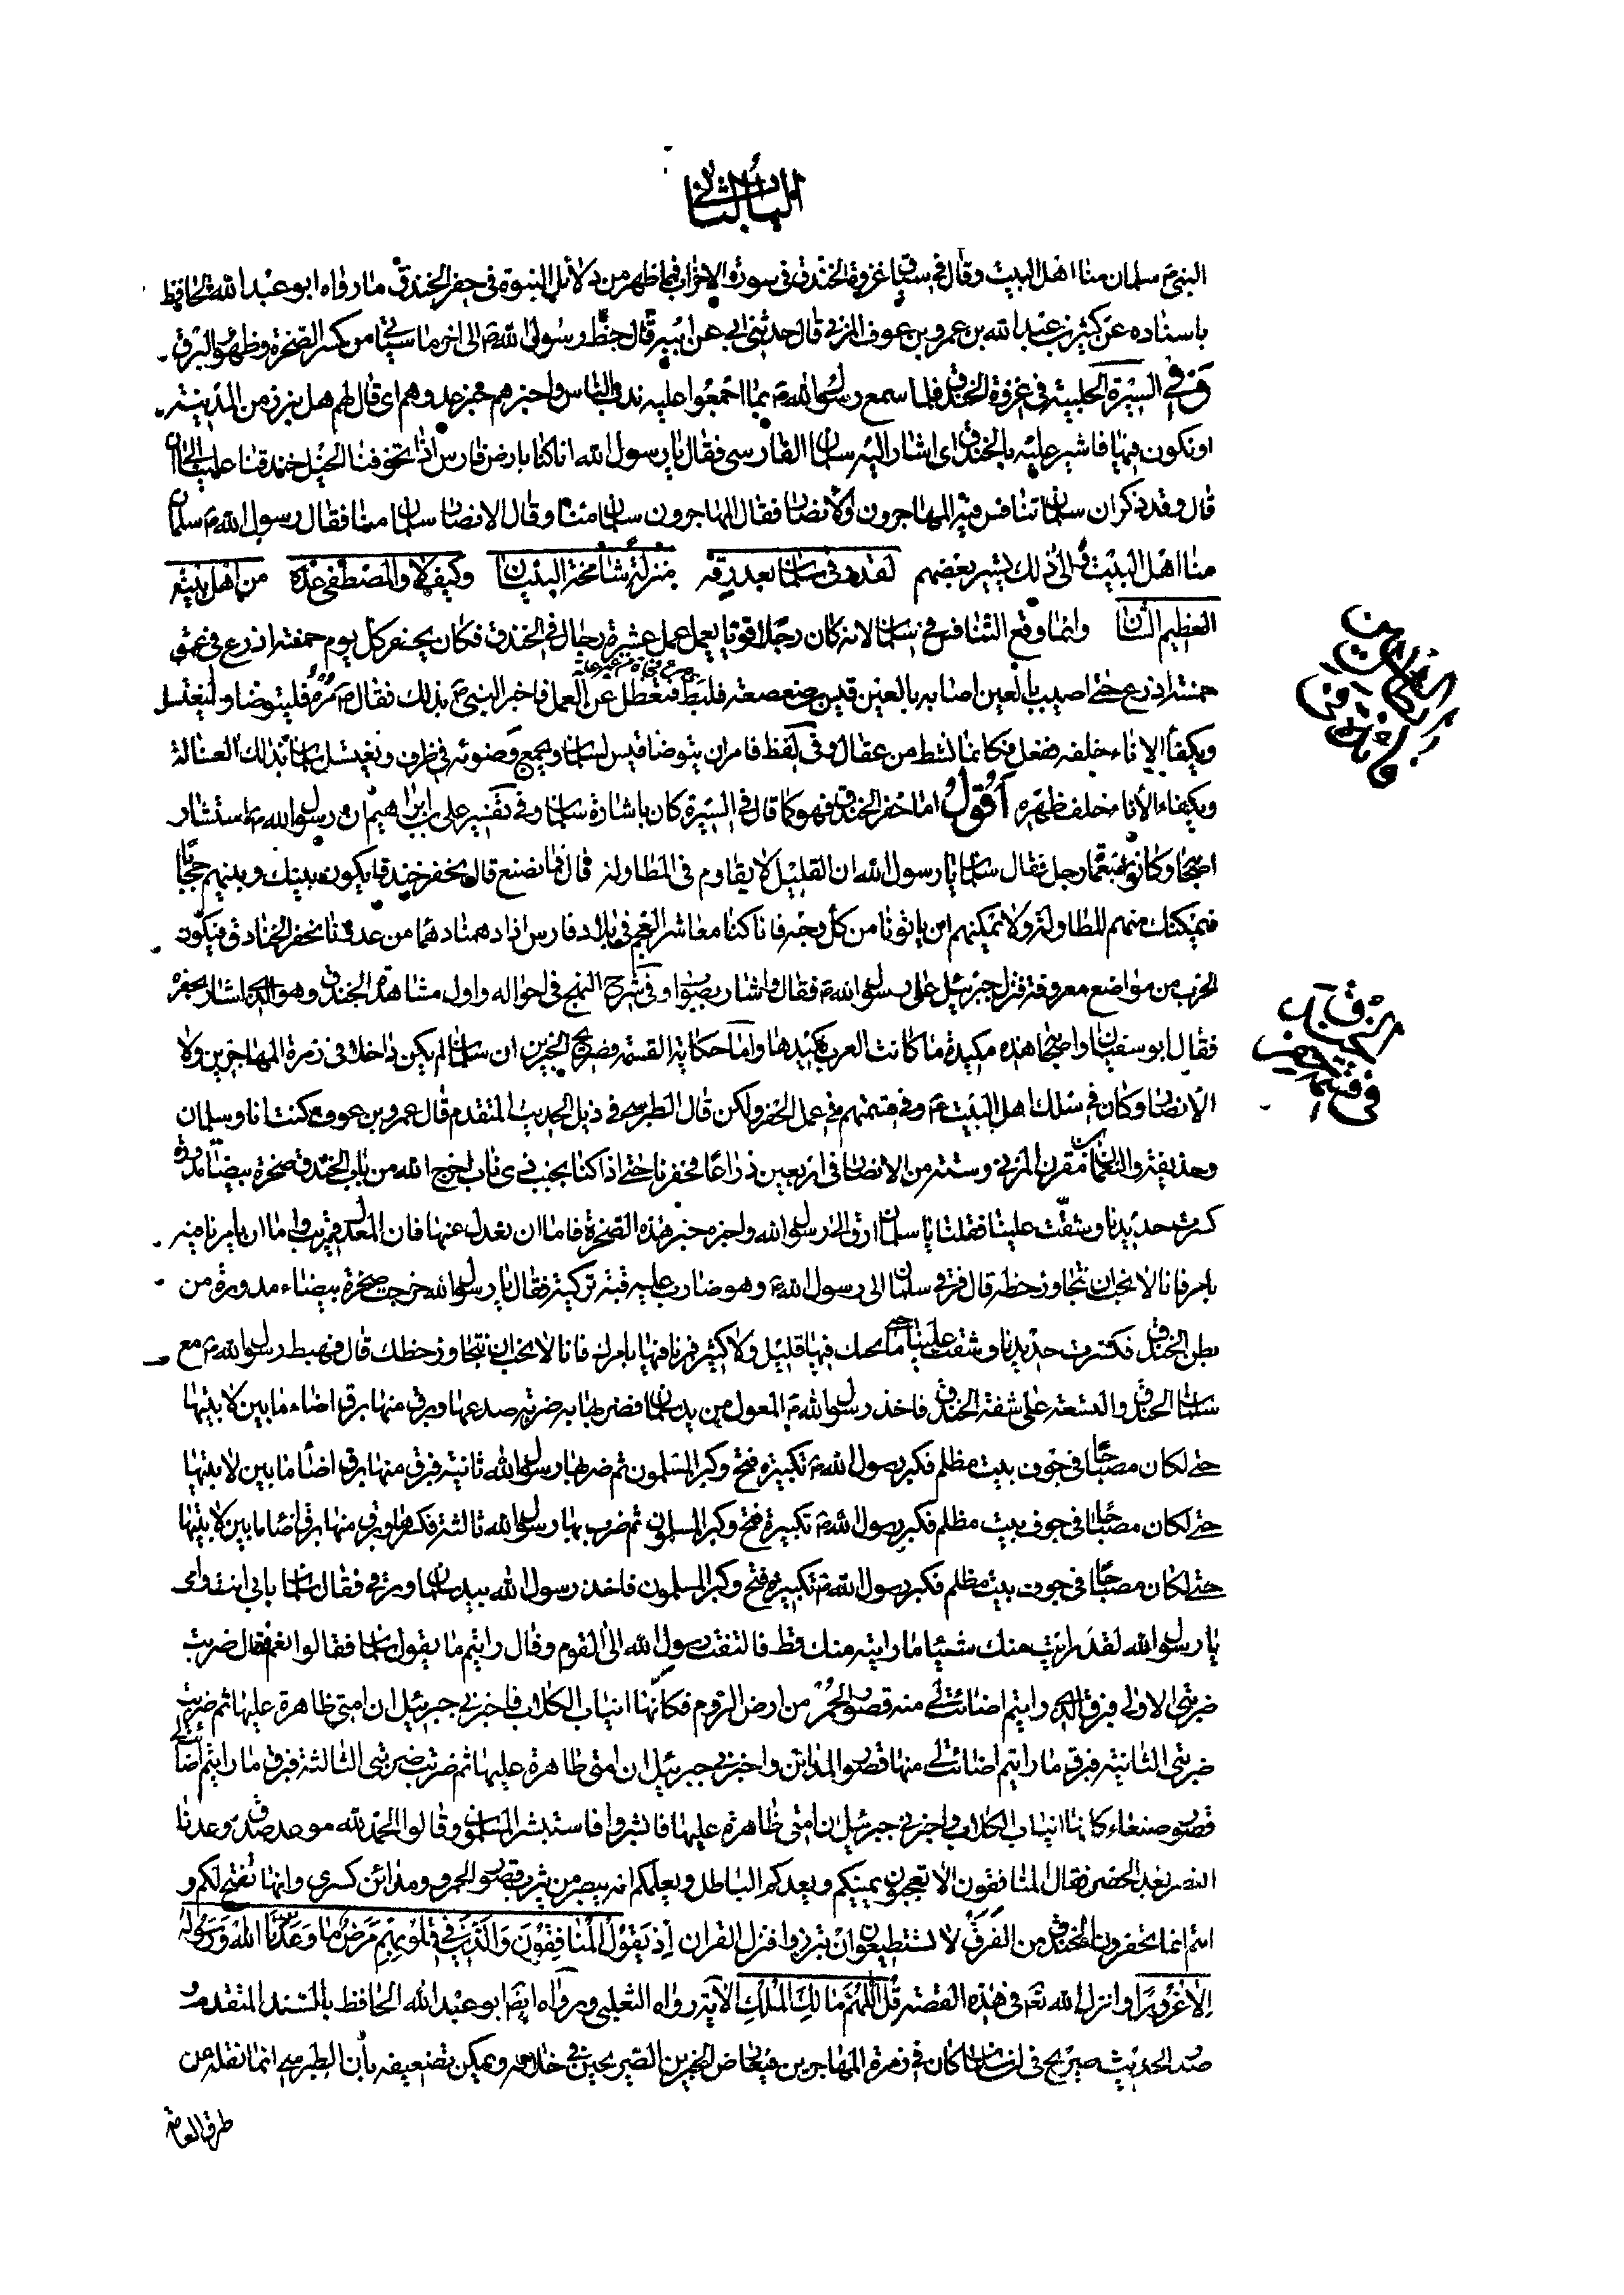 الباب الثاني
النبي ص سلمان منا اهل البيت وقال في سياق غزوة الخندق في سورة الاحزاب فما ظهر من دلائل النبوة في حفر الخندق ما رواه ابو عبد الله الحافظ
باسناده عن كثير بن عبد الله بن عمرو بن عوف المزني قال حدثني ابي عن ابيه قال خط رسول الله ص الى اخر ما سياتي من كسر الصخرة وظهور البرق
وفي السيرة الحلبية في غزوة الخندق فلما سمع رسول الله ص بما اجمعوا عليه ندب الناس واخبرهم خبر عدوهم اي قال لهم هل نبرز من المدينة
او نكون فيها فاشير عليه بالخندق اي اشار اليه سلمان الفارسي فقال يا رسول الله انا كنا بارض فارس اذا تخوفنا الخيل خندقنا علينا الى ان
قال وقد ذكر ان سلمان تنافس فيه المهاجرون والانصار فقال المهاجرون سلمان منا وقال الانصار سلمان منا فقال رسول الله ص سلمان
منا اهل البيت والى ذلك يشير بعضهم لقد رقى سلمان بعد رقه منزلة شامخة البنيان وكيف لا والمصطفى عده من اهل بيته
العظيم الشان وانما وقع التنافس في سلمان لانه كان رجلا قويا يعمل عمل عشرة رجال في الخندق فكان يحفر كل يوم خمسة اذرع في عمق
خمسة اذرع حتى اصيب بالعين اصابه بالعين قيس بن صعصعة فلبط فتعطل عن العمل فاخبر النبي ص بذلك فقال ص مروه فليتوضا وليغتسل
ويكفأ الاناء خلفه ففعل فكانما نشط من عقال وفي لفظ فامر ان يتوضا قيس لسلمان ويجمع وضوئه في ظرف ويغتسل سلمان بذلك الغسالة
ويكفاء الاناء خلف ظهره اقول اما حفر الخندق فهو كما قال في السيرة كان باشارة سلمان وفي تفسير علي بن ابراهيم ان رسول الله ص استشار
اصحابه وكانوا سبعمائة رجل فقال سلمان يا رسول الله ان القليل لا يقاوم في المطاولة قال فما نصنع قال نحفر خندقا يكون بينك وبينهم حجابا
فيمكنك منهم للمطاولة ولا يمكنهم ان ياتونا من كل وجه فانا كنا معاشر العجم في بلاد فارس اذا دهمنا دهم من عدونا نحفر الخنادق فيكون
الحرب من مواضع معروفة فنزل جبرئيل على رسول الله ص فقال اشار بصواب وفي شرح النهج في احواله واول مشاهده الخندق وهو الذي اشار بحفره
فقال ابو سفيان واصحابه هذه مكيدة ما كانت العرب تكيدها واما حكاية القسمة فصريح الخبرين ان سلمان لم يكن داخلا في زمرة المهاجرين ولا
الانصار وكان في سلك اهل البيت ع وفي قسمتهم في عمل الحفر ولكن قال الطبرسي في ذيل الحديث المتقدم قال عمرو بن عوف كنت انا وسلمان
وحذيفة والنعمان بن مقرن المزني وستة من الانصار في اربعين ذراعا فحفرنا حتى اذا كنا بجنب ذي ناب اخرج الله من بطن الخندق صخرة بيضاء مدورة
كسرت حديدنا وشقت علينا فقلنا يا سلمان ارق الى رسول الله واخبره خبر هذه الصخرة فاما ان نعدل عنها فان المعدل قريب واما ان يامرنا فيه
بامره فانا لا نحب ان نتجاوز خطه قال فرقى سلمان الى رسول الله ص وهو ضارب عليه قبة تركية فقال يا رسول الله خرجت صخرة بيضاء مدورة من
بطن الخندق فكسرت حديدنا وشقت علينا حتى ما يحك فيها قليل ولا كثير فمرنا فيها بامرك فانا لا نحب ان نتجاوز خطك قال فهبط رسول الله ص مع
سلمان الخندق والتسعة على شفة الخندق فاخذ رسول الله ص المعول من يد سلمان فضربها به ضربة صدعها وبرق منها برق اضاء ما بين لابتيها
حتى لكان مصباحا في جوف بيت مظلم فكبر رسول الله ص تكبيرة فتح وكبر المسلمون ثم ضربها رسول الله ثانية فبرق منها برق اضاء ما بين لابتيها
حتى لكان مصباحا في جوف بيت مظلم فكبر رسول الله ص تكبيرة فتح وكبر المسلمون ثم ضرب بها رسول الله ثالثة فكسرها وبرق منها برق اضاء ما بين لابتيها
حتى لكان مصباحا في جوف بيت مظلم فكبر رسول الله ص تكبيرة فتح وكبر المسلمون فاخذ رسول الله بيد سلمان ورقى فقال سلمان بابي انت وامي
يا رسول الله لقد رايت منك شيئا ما رايته منك قط فالتفت رسول الله الى القوم وقال رايتم ما يقول سلمان فقالوا نعم فقال ضربت
ضربتي الاولى فبرق الذي رايتم اضائت لي منه قصور الحمر من ارض الروم فكانها انياب الكلاب فاخبرني جبرئيل ان امتي ظاهرة عليها ثم ضربت
ضربتي الثانية فبرق ما رايتم اضائت لي منها قصور المدائن واخبرني جبرئيل ان امتي ظاهرة عليها ثم ضربت ضربتي الثالثة فبرق ما رايتم اضائت لي
قصور صنعاء كانها انياب الكلاب واخبرني جبرئيل ان امتي ظاهرة عليها فابشروا فاستبشر المسلمون وقالوا الحمد لله موعد صدق وعدنا
النصر بعد الحضر فقال المنافقون الا تعجبون يمنيكم ويعدكم الباطل ويعلمكم انه يبصر من يثرب قصور الحمر ومدائن كسرى وانها تفتح لكم و
انتم انما تحفرون الخندق من الفرق لا تستطيعون ان تبرزوا فنزل القران اِذ يَقُولُ الْمُنَافِقُونَ وَالَّذينَ في قُلُوبِهِم مَرَضٌ ما وَعَدَنَا اللهُ وَرَسُولُهُ
اِلا غُرُورًا وانزل الله تع في هذه القصة قُلِ اللّهُمَّ مَالِكَ الْمُلْكِ الاية رواه الثعلبي ورواه ايضا ابو عبد الله الحافظ بالسند المتقدم
الحديث صريح في ان سلمان كان في زمرة المهاجرين فيعارض الخبرين الصريحين في خلافه ويمكن تضعيفه بأن الطبرسي انما نقله من
طرق العامة